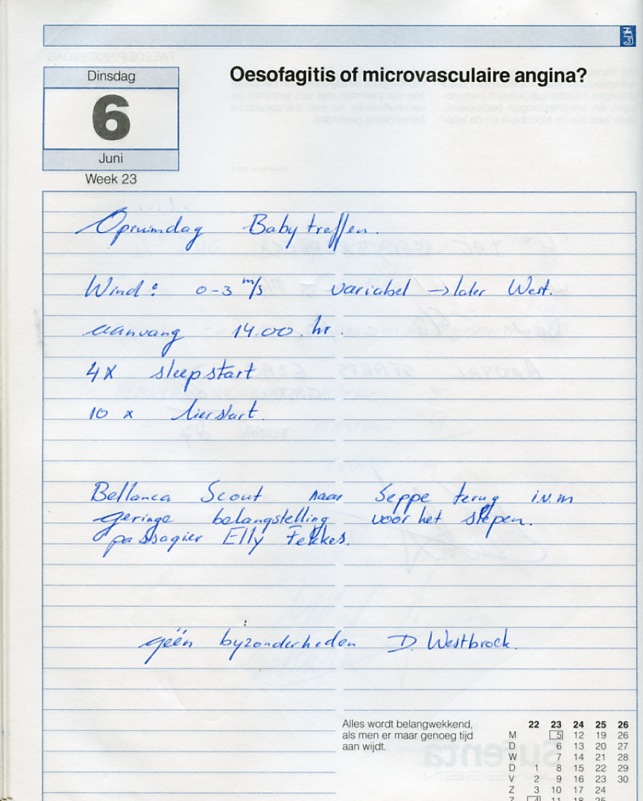 Dinsdag
6
Juni
Week 23
Oesofagitis of microvasculaire angina?
Opruimdag Babytreffen.
Wind: 0-3 m/s variabel → later West.
aanvang 14.00. hr.
4x sleepstart
10 x lierstart.
Bellanca Scout naar Seppe terug i.v.m
geringe belangstelling voor het slepen.
passagier Elly Fekkes.
géén byzonderheden D. Westbroek.
Alles wordt belangwekkend,
als men er maar genoeg tijd
aan wijdt.
22 23 24 25 26
M 5 12 19 26
D 6 13 20 27
W 7 14 21 28
D 1 8 15 22 29
V 2 9 16 23 30
Z 3 10 17 24
Z 4 11 18 25